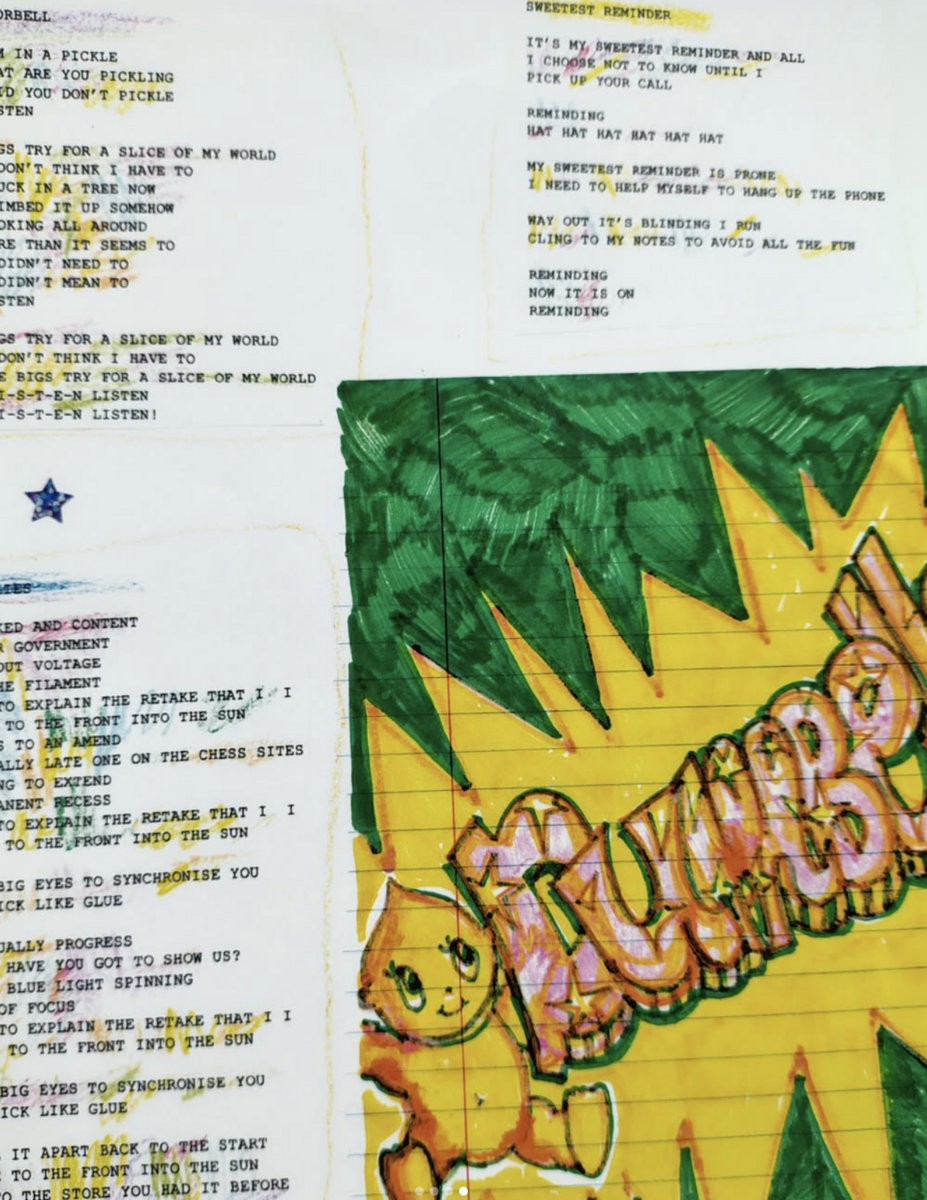 ORBELL
M IN A PICKLE
AT ARE YOU PICKLING
ID YOU DON'T PICKLE
STEN
GS TRY FOR A SLICE OF MY WORLD
DON'T THINK I HAVE TO
UCK IN A TREE NOW
IMBED IT UP SOMEHOW
OKING ALL AROUND
RE THAN IT SEEMS TO
DIDN'T NEED TO
DIDN'T MEAN TO
STEN
GS TRY FOR A SLICE OF MY WORLD
DON'T THINK I HAVE TO
E BIGS TRY FOR A SLICE OF MY WORLD
I-S-T-E-N LISTEN
I-S-T-E-N LISTEN!
LIES
KED AND CONTENT
R GOVERNMENT
OUT VOLTAGE
HE FILAMENT
TO EXPLAIN THE RETAKE THAT I I
TO THE FRONT INTO THE SUN
S TO AN AMEND
ALLY LATE ONE ON THE CHESS SITES
NG TO EXTEND
ANENT RECESS
TO EXPLAIN THE RETAKE THAT I I
TO THE FRONT INTO THE SUN
BIG EYES TO SYNCHRONISE YOU
ICK LIKE GLUE
UALLY PROGRESS
HAVE YOU GOT TO SHOW US?
BLUE LIGHT SPINNING
OF FOCUS
TO EXPLAIN THE RETAKE THAT I I
TO THE FRONT INTO THE SUN
BIG EYES TO SYNCHRONISE YOU
ICK LIKE GLUE
IT APART BACK TO THE START
TO THE FRONT INTO THE SUN
O THE STORE YOU HAD IT BEFORE
SWEETEST REMINDER
IT'S MY SWEETEST REMINDER AND ALL
I CHOOSE NOT TO KNOW UNTIL I
PICK UP YOUR CALL
REMINDING
HAT HAT HAT HAT HAT HAT
MY SWEETEST REMINDER IS PRONE
I NEED TO HELP MYSELF TO HANG UP THE PHONE
WAY OUT IT'S BLINDING I RUN
CLING TO MY NOTES TO AVOID ALL THE FUN
REMINDING
NOW IT IS ON
REMINDING